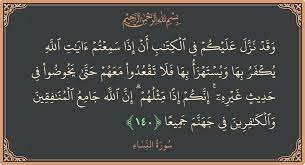 بِسْمِ اللَّهِ الرَّحْمَٰنِ الرَّحِيمِ
وَقَدْ نَزَّلَ عَلَيْكُمْ فِي الْكِتَابِ أَنْ إِذَا سَمِعْتُمْ ءَايَاتِ اللَّهِ
يُكْفَرُ بِهَا وَيُسْتَهْزَأُ بِهَا فَلَا تَقْعُدُوا مَعَهُمْ حَتَّىٰ يَخُوضُوا فِي
حَدِيثٍ غَيْرِهِ ۚ إِنَّكُمْ إِذًا مِثْلُهُمْ ۗ إِنَّ اللَّهَ جَامِعُ الْمُنَافِقِينَ
وَالْكَافِرِينَ فِي جَهَنَّمَ جَمِيعًا ﴿١٤٠﴾
سُورَةُ النِّسَاءِ